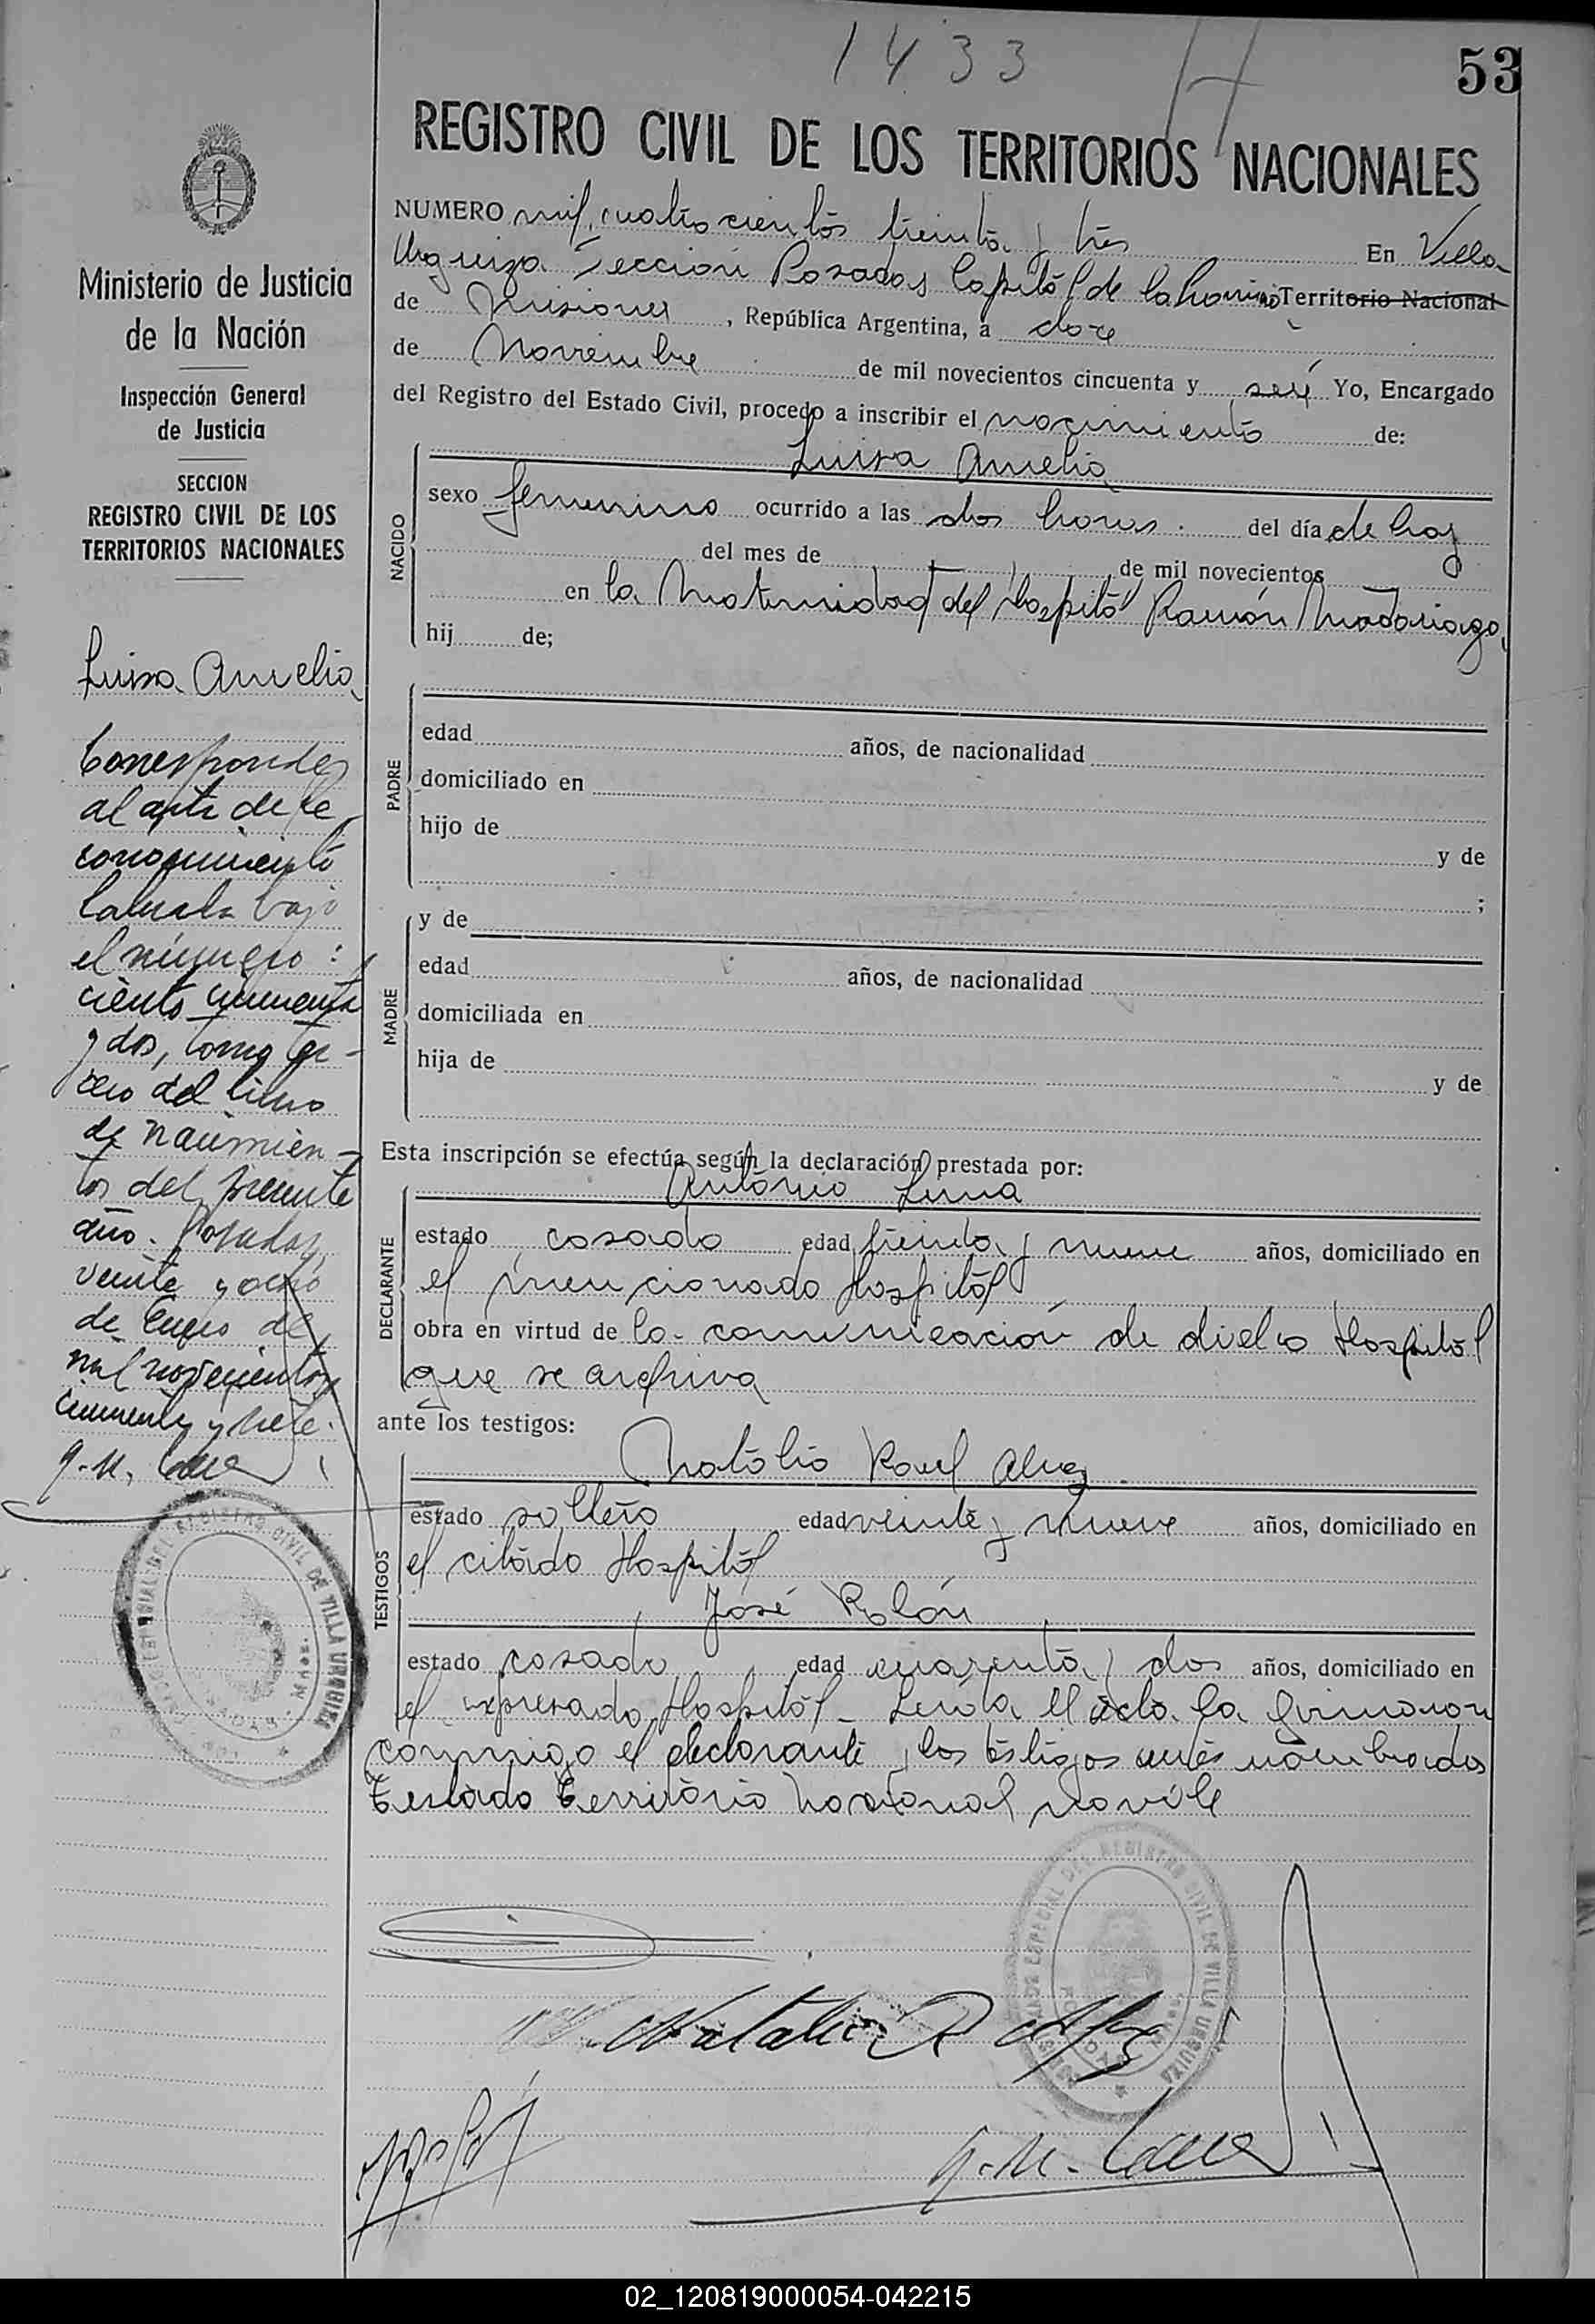 1433
53
REGISTRO CIVIL DE LOS TERRITORIOS NACIONALES
Ministerio de Justicia
de la Nación
Inspección General
de Justicia
SECCION
REGISTRO CIVIL DE LOS
TERRITORIOS NACIONALES
Luisa Amelia
Corresponde
al acta de re
conocimiento
labrada bajo
el número :
ciento cincuenta
y dos, tomo pri-
mero del libro
de nacimien-
tos del presente
año. Posadas,
veinte y ocho
de Enero de
mil novecientos
cincuenta y siete.
REGISTRO CIVIL DE VILLA URQUIZA
NUMERO mil cuatrocientos treinta y tres En Villa
Urquiza Sección Posadas Capital de la Provincia Territorio Nacional
de Misiones, República Argentina, a doce
de Noviembre de mil novecientos cincuenta y seis Yo, Encargado
del Registro del Estado Civil, procedo a inscribir el nacimiento de:
Luisa Amelia
NACIDO
sexo femenino ocurrido a las dos horas. del día de hoy
del mes de de mil novecientos
en la Maternidad del Hospital Ramón Madariaga
hij de;
PADRE
edad años, de nacionalidad
domiciliado en
hijo de y de
;
MADRE
y de
edad años, de nacionalidad
domiciliada en
hija de y de
Esta inscripción se efectúa según la declaración prestada por:
Antonio Luna
DECLARANTE
estado casado edad treinta y nueve años, domiciliado en
el mencionado Hospital
obra en virtud de la comunicación de dicho Hospital
que se archiva
ante los testigos:
Natalio Raul Alvez
TESTIGOS
estado soltero edad veinte y nueve años, domiciliado en
el citado Hospital
José Rolón
estado casado edad cuarenta y dos años, domiciliado en
el expresado Hospital - Leída el acta la firmaron
conmigo el declarante y los testigos antes nombrados
Testado Territorio Nacional no vale
REGISTRO CIVIL DE VILLA URQUIZA
Natalio R Alvez
02_120819000054-042215